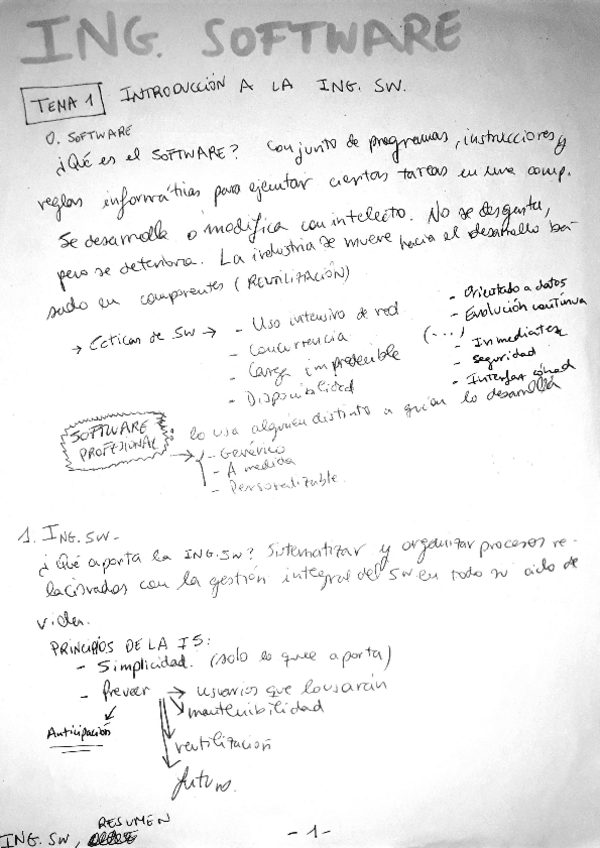 ING. SOFTWARE
TEMA 1 INTRODUCCIÓN A LA ING. SW.
0. SOFTWARE
¿Qué es el SOFTWARE? Conjunto de programas, instrucciones y
reglas informáticas para ejecutar ciertas tareas en una comp.
Se desarrolla o modifica con intelecto. No se desgasta,
pero se deteriora. La industria se mueve hacia el desarrollo ba-
sado en componentes (REUTILIZACIÓN)
→ Ccticas de SW → - Uso intensivo de red
- Concurrencia
- Carga impredecible
- Disponibilidad
(...)
- Orientado a datos
- Evolución continua
- Inmediatez
- Seguridad
- Interfaz
SOFTWARE PROFESIONAL: lo usa alguien distinto a quien lo desarrolla
→ - Genérico
- A medida
- Personalizable.
1. ING. SW-
¿Qué aporta la ING. SW? Sistematizar y organizar procesos re-
lacionados con la gestión integral del SW en todo su ciclo de
vida.
PRINCIPIOS DE LA IS:
- Simplicidad. (solo lo que aporta)
- Preveer → usuarios que lo usarán
mantenibilidad
Anticipación
reutilización
futuro.
RESUMEN
ING. SW,
- 1 -